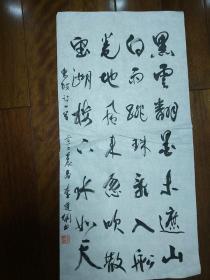 黑雲翻墨未遮山
白雨跳珠亂入船
卷地風来忽吹散
望湖樓下水如天